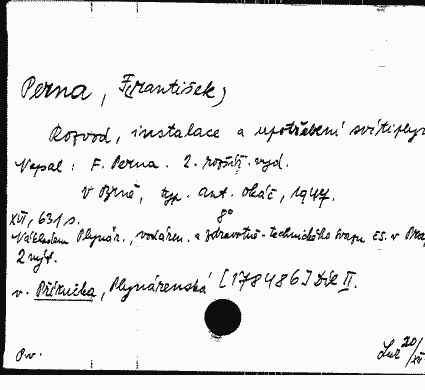 Perna, F(rantišek)
Rozvod, instalace a upotřebení svítiplyn
Napsal: F. Perna. 2. rozšíř. vyd.
V Brně, typ. Ant. Okáč, 1947.
8°
XVI, 631 s.
Nákladem Plynár., vodáren. a zdravotně-technického svazu čs. v Pra
2 výt.
v. Příručka, Plynárenská [178486] Díl II.
20/XII
Pv.